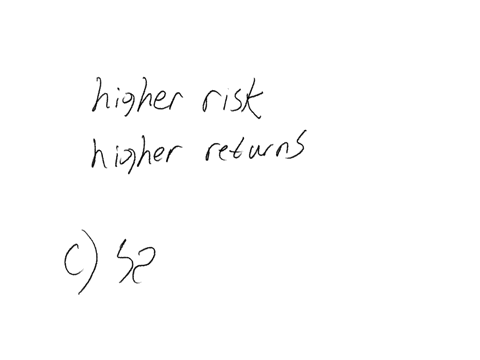 higher risk
higher returns
c) 52